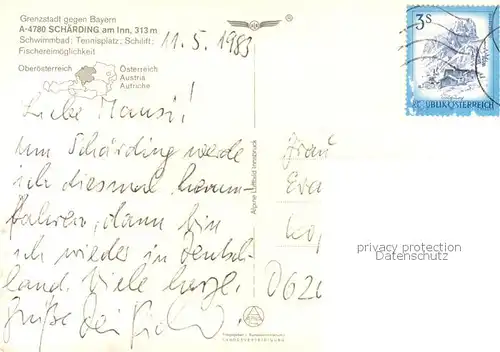 Grenzstadt gegen Bayern
A-4780 SCHÄRDING am Inn, 313 m
Schwimmbad; Tennisplatz; Schilift;
Fischereimöglichkeit
11. 5. 1983
Oberösterreich
Österreich
Austria
Autriche
Liebe Mausi!
Um Schärding werde
ich diesmal herum-
fahren, dann bin
ich wieder in Deutsch-
land. Viele herzl.
Grüße Dein
Alpine Luftbild Innsbruck
LANDESVERTEIDIGUNG
3 S
REPUBLIK ÖSTERREICH
Frau
Eva
privacy protection
Datenschutz
D 62